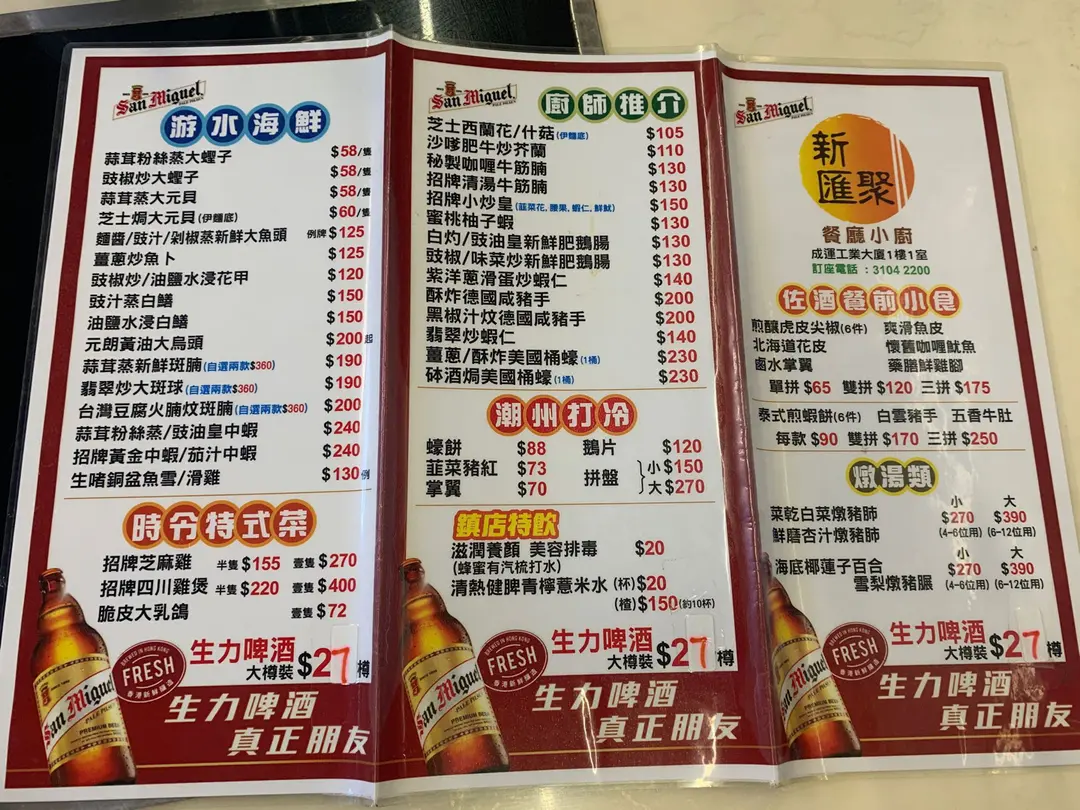 San Miguel
PALE PILSEN
游水海鮮
蒜茸粉絲蒸大蟶子 $58/隻
豉椒炒大蟶子 $58/隻
蒜茸蒸大元貝 $58/隻
芝士焗大元貝(伊麵底) $60/隻
麵醬/豉汁/剁椒蒸新鮮大魚頭 例牌 $125
薑蔥炒魚卜 $125
豉椒炒/油鹽水浸花甲 $120
豉汁蒸白鱔 $150
油鹽水浸白鱔 $150
元朗黃油大烏頭 $200起
蒜茸蒸新鮮斑腩(自選兩款$360) $190
翡翠炒大斑球(自選兩款$360) $190
台灣豆腐火腩炆斑腩(自選兩款$360) $200
蒜茸粉絲蒸/豉油皇中蝦 $240
招牌黃金中蝦/茄汁中蝦 $240
生啫銅盆魚雪/滑雞 $130例
時令特式菜
招牌芝麻雞 半隻 $155 壹隻 $270
招牌四川雞煲 半隻 $220 壹隻 $400
脆皮大乳鴿 壹隻 $72
BREWED IN HONG KONG
FRESH
香港新鮮釀造
生力啤酒
大樽裝 $27樽
生力啤酒
真正朋友
San Miguel
PALE PILSEN
廚師推介
芝士西蘭花/什菇(伊麵底) $105
沙嗲肥牛炒芥蘭 $110
秘製咖喱牛筋腩 $130
招牌清湯牛筋腩 $130
招牌小炒皇(韮菜花, 腰果, 蝦仁, 鮮魷) $150
蜜桃柚子蝦 $130
白灼/豉油皇新鮮肥鵝腸 $130
豉椒/味菜炒新鮮肥鵝腸 $130
紫洋蔥滑蛋炒蝦仁 $140
酥炸德國咸豬手 $200
黑椒汁炆德國咸豬手 $200
翡翠炒蝦仁 $140
薑蔥/酥炸美國桶蠔(1桶) $230
砵酒焗美國桶蠔(1桶) $230
潮州打冷
蠔餅 $88 鵝片 $120
韮菜豬紅 $73 拼盤 小 $150
掌翼 $70 大 $270
鎮店特飲
滋潤養顏 美容排毒 $20
(蜂蜜有汽梳打水)
清熱健脾青檸薏米水 (杯)$20
(楂)$150(約10杯)
BREWED IN HONG KONG
FRESH
香港新鮮釀造
生力啤酒
大樽裝 $27樽
生力啤酒
真正朋友
San Miguel
PALE PILSEN
新匯聚
餐廳小廚
成運工業大廈1樓1室
訂座電話：3104 2200
佐酒餐前小食
煎釀虎皮尖椒(6件) 爽滑魚皮
北海道花皮 懷舊咖喱魷魚
鹵水掌翼 藥膳鮮雞腳
單拼 $65 雙拼 $120 三拼 $175
泰式煎蝦餅(6件) 白雲豬手 五香牛肚
每款 $90 雙拼 $170 三拼 $250
燉湯類
小 大
菜乾白菜燉豬肺 $270 $390
鮮膳杏汁燉豬肺 (4-6位用) (6-12位用)
小 大
海底椰蓮子百合 $270 $390
雪梨燉豬𦟌 (4-6位用) (6-12位用)
BREWED IN HONG KONG
FRESH
香港新鮮釀造
生力啤酒
大樽裝 $27樽
生力啤酒
真正朋友